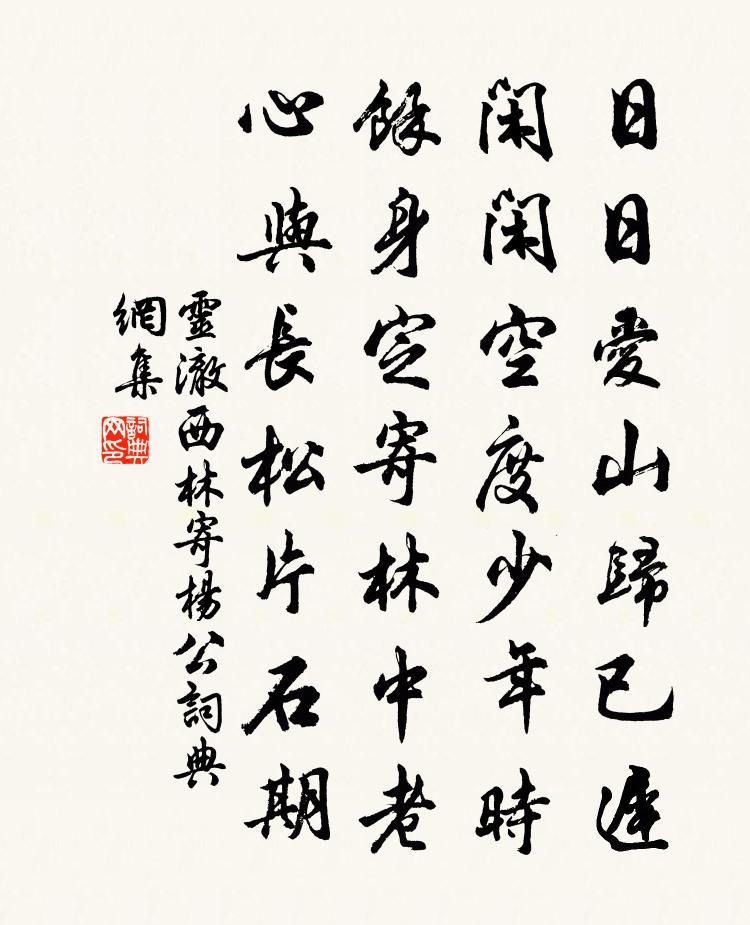 日日愛山歸已遲
閑閑空度少年時
餘身定寄林中老
心與長松片石期
靈澈西林寄楊公詞典
網集
詞典網印